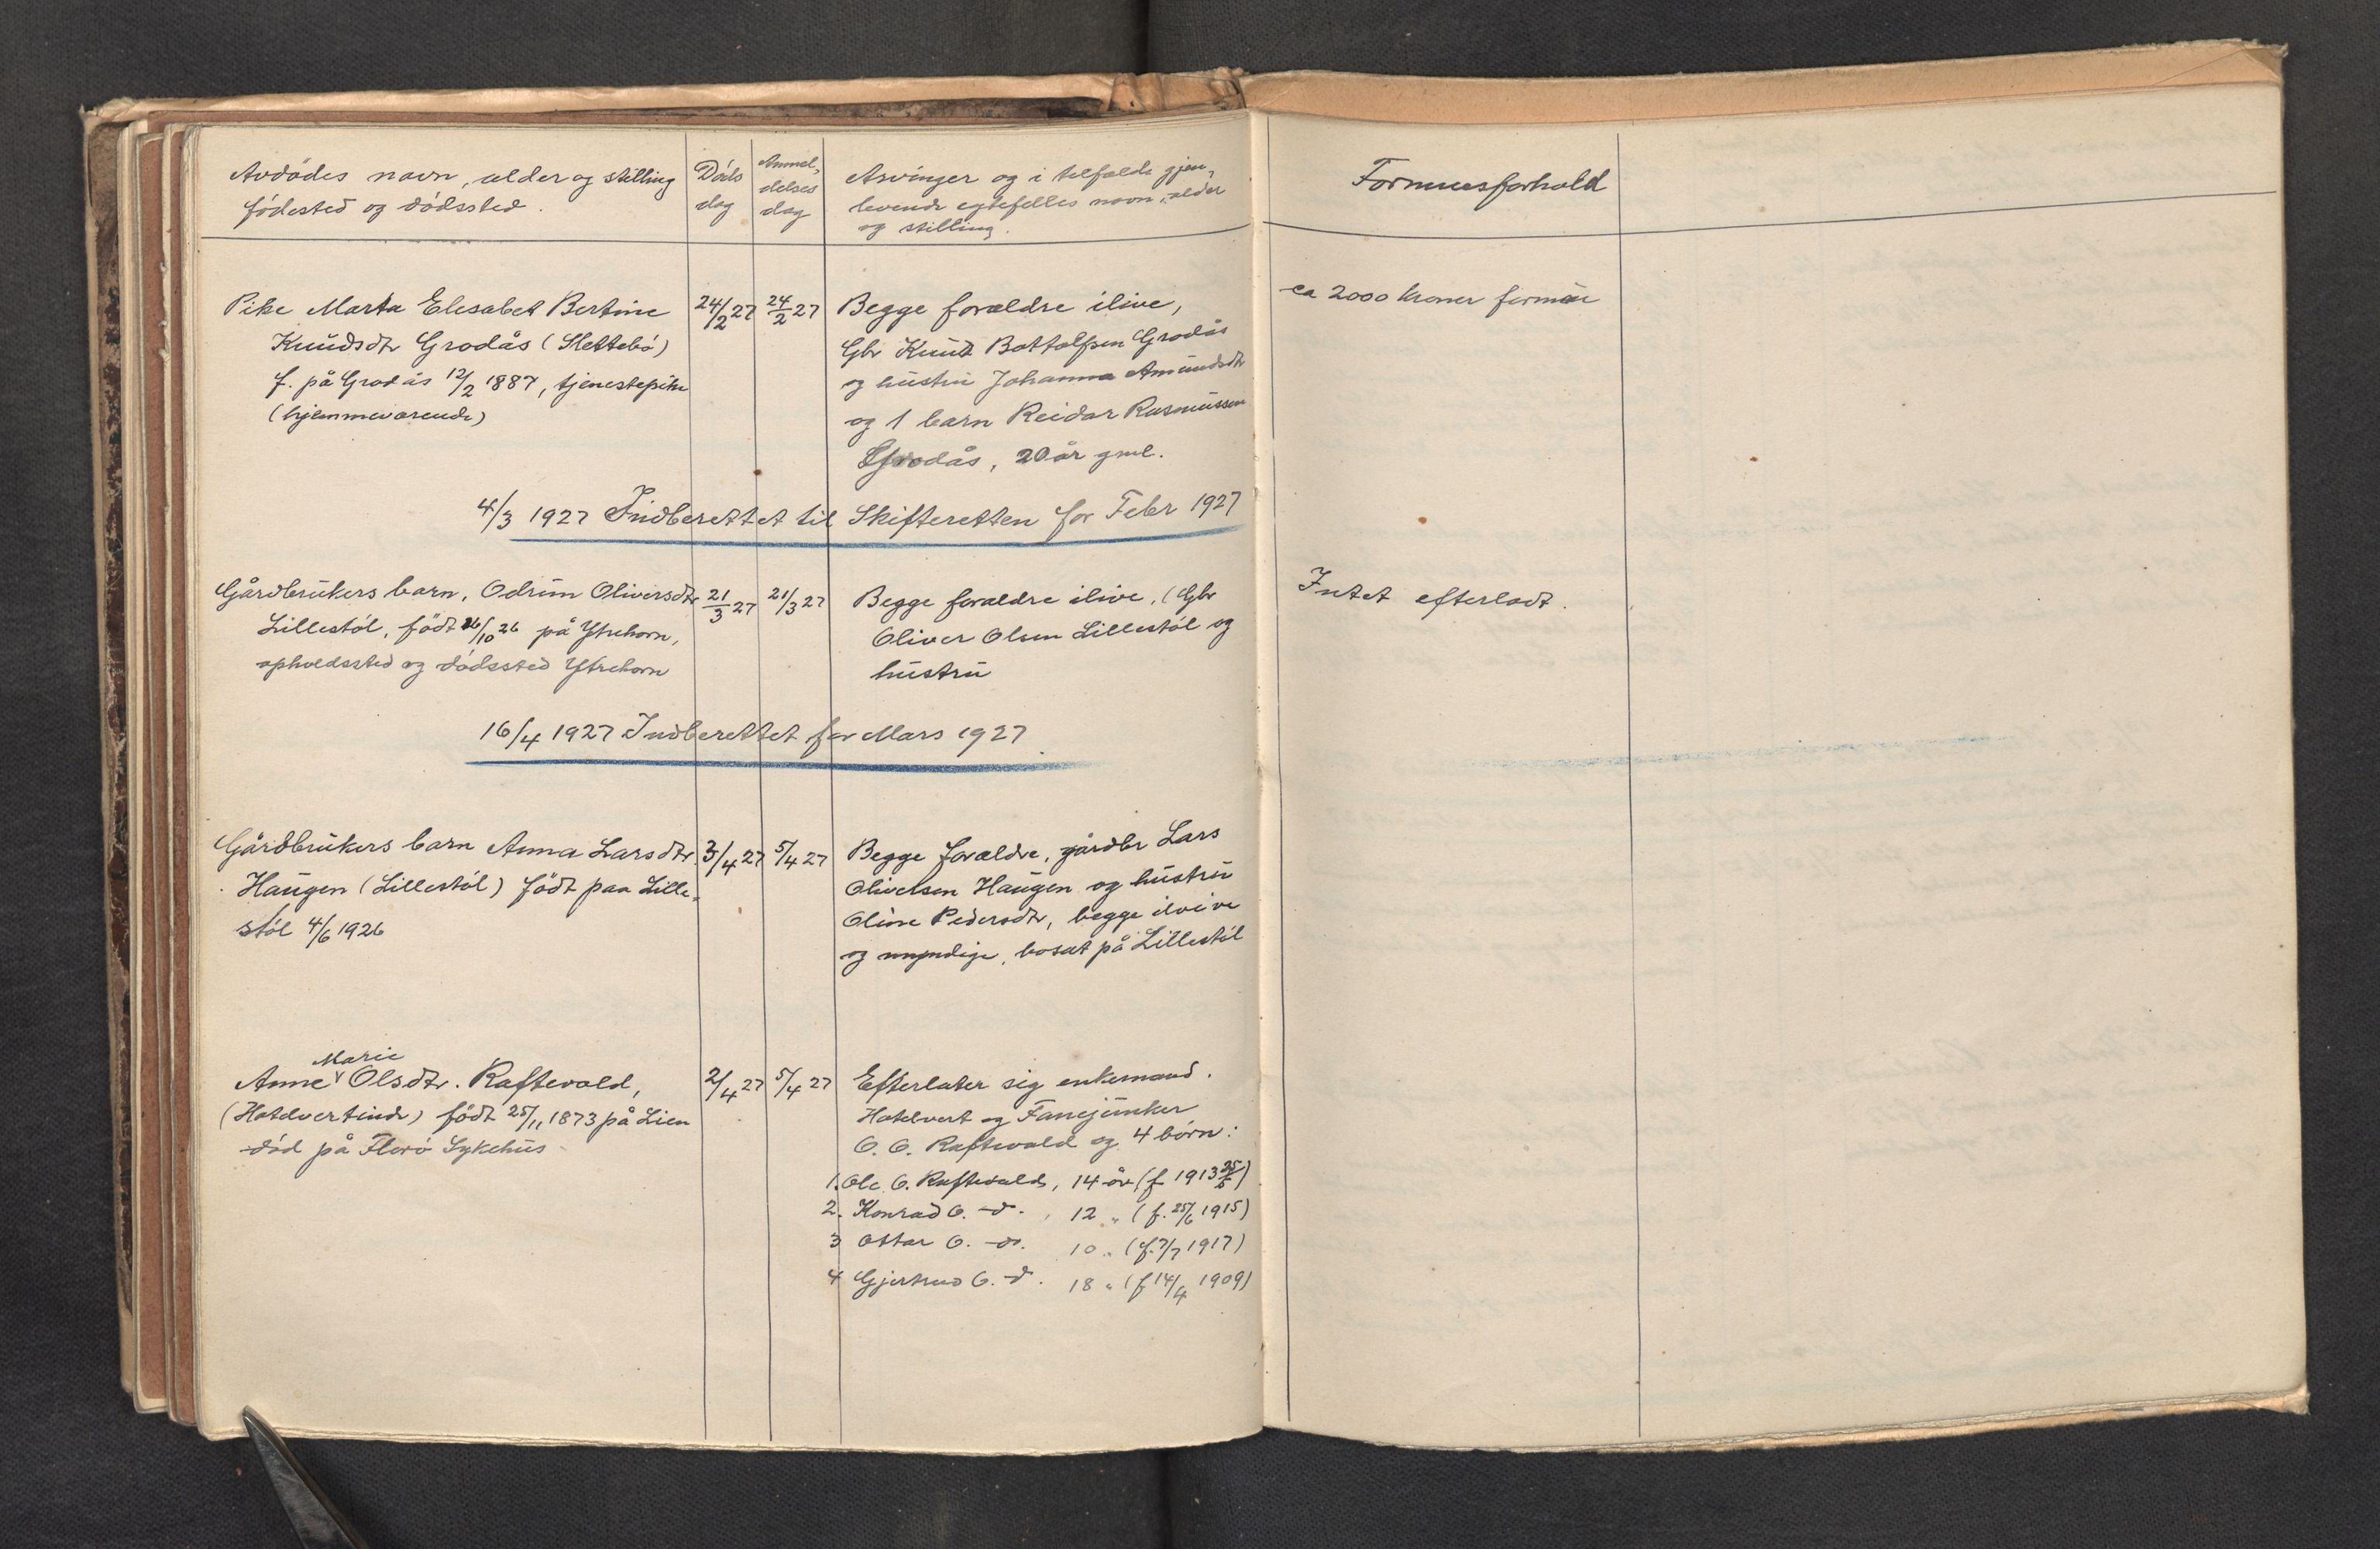 Avdödes navn, alder og stilling
födested og dödssted.
Döds
dag
Anmel,
delses
dag
Arvinger og i tilfælde gjen,
levende egtefelles navn, alder
og stilling.
Formuesforhold
Pike Marta Elesabet Bertine
Knudsdtr Grodås (Slettebö)
f. på Grodås 12/2 1887, tjenestepike
(hjemmeværende)
24/2 27
24/2 27
Begge forældre ilive,
Gbr Knut Bottolfsen Grodås
og hustru Johanna Amundsdtr
og 1 barn Reidar Rasmussen
Grodås, 20 år gml.
ca 2000 kroner formue
4/3 1927 Indberettet til Skifteretten for Febr 1927
Gårdbrukers barn, Odrun Oliversdtr
Lillestöl, födt 26/10 26 på Ytrehorn,
opholdssted og dödssted Ytrehorn
21/3 27
21/3 27
Begge forældre ilive, (Gbr
Oliver Olsen Lillestöl og
hustru
Intet efterladt.
16/4 1927 Indberettet for Mars 1927
Gårdbrukers barn Anna Larsdtr.
Haugen (Lillestöl) födt paa Lille,
stöl 4/6 1926
3/4 27
5/4 27
Begge forældre, gårdbr Lars
Oliversen Haugen og hustru
Oline Pedersdtr, begge ilvive
og myndige, bosat på Lillestöl
Marie
Anne Olsdtr. Raftevold,
(Hotelvertinde) födt 25/11 1873 på Lien
död på Florö Sykehus
2/4 27
5/4 27
Efterlater sig enkemand.
Hotelvert og Fanejunker
O. O. Raftevold og 4 börn:
1. Ole O. Raftevold, 14 år (f 1913 25/5)
2. Konrad O. -d-. 12 " (f. 25/6 1915)
3 Ottar O. -d-. 10 " (f. 7/7 1917)
4 Gjertrud O. -d-. 18 " (f 14/4 1909)